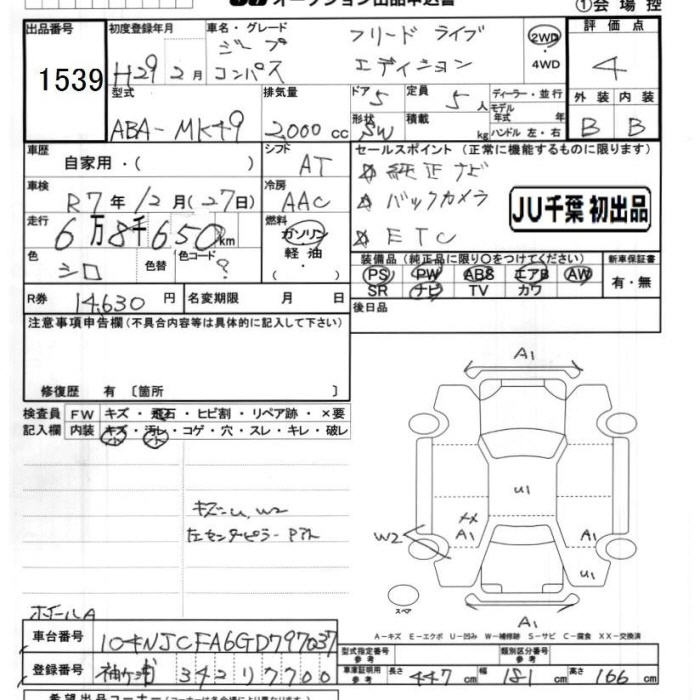 オークション出品申込書
①会場控
出品番号 1539
初度登録年月 H29 2月
車名・グレード ジープ コンパス フリード ライブ エディション
2WD・4WD
評価点 4
外装 内装
B B
型式 ABA-MK49
排気量 2000 cc
ドア 5
形状 SW
定員 5人
積載 kg
ディーラー・並行
モデル年式 年式
ハンドル 左・右
車歴 自家用・( )
シフト AT
セールスポイント (正常に機能するものに限ります)
☆ 純正ナビ
☆ バックカメラ
☆ ETC
JU千葉 初出品
車検 R7年12月(27日)
冷房 AAC
走行 6万8千650km
燃料 ガソリン 軽油 ・( )
色 シロ 色替 色コード ?
装備品 (純正品に限り○をつけてください)
新車保証書 有・無
PS PW ABS エアB AW
SR ナビ TV カワ
R券 14,630 円 名変期限 月 日
後日品
注意事項申告欄 (不具合内容等は具体的に記入して下さい)
修復歴 有 〔箇所 〕
検査員記入欄
FW キズ・飛石・ヒビ割・リペア跡・×要
内装 キズ・汚レ・コゲ・穴・スレ・キレ・破レ
キズ=U, W2
左センターピラーPアト
A1
U1
W2
A1
A1
U1
A1
スペア
ホイールA
A-キズ E-エクボ U-凹み W-補修跡 S-サビ C-腐食 XX-交換済
車台番号 1C4NJCFA6GD797037
登録番号 袖ヶ浦 342 リ 7700
型式指定番号 参考
類別区分番号 参考
車庫証明用 参考 長さ 447 cm 幅 181 cm 高さ 166 cm
希望出品コーナー